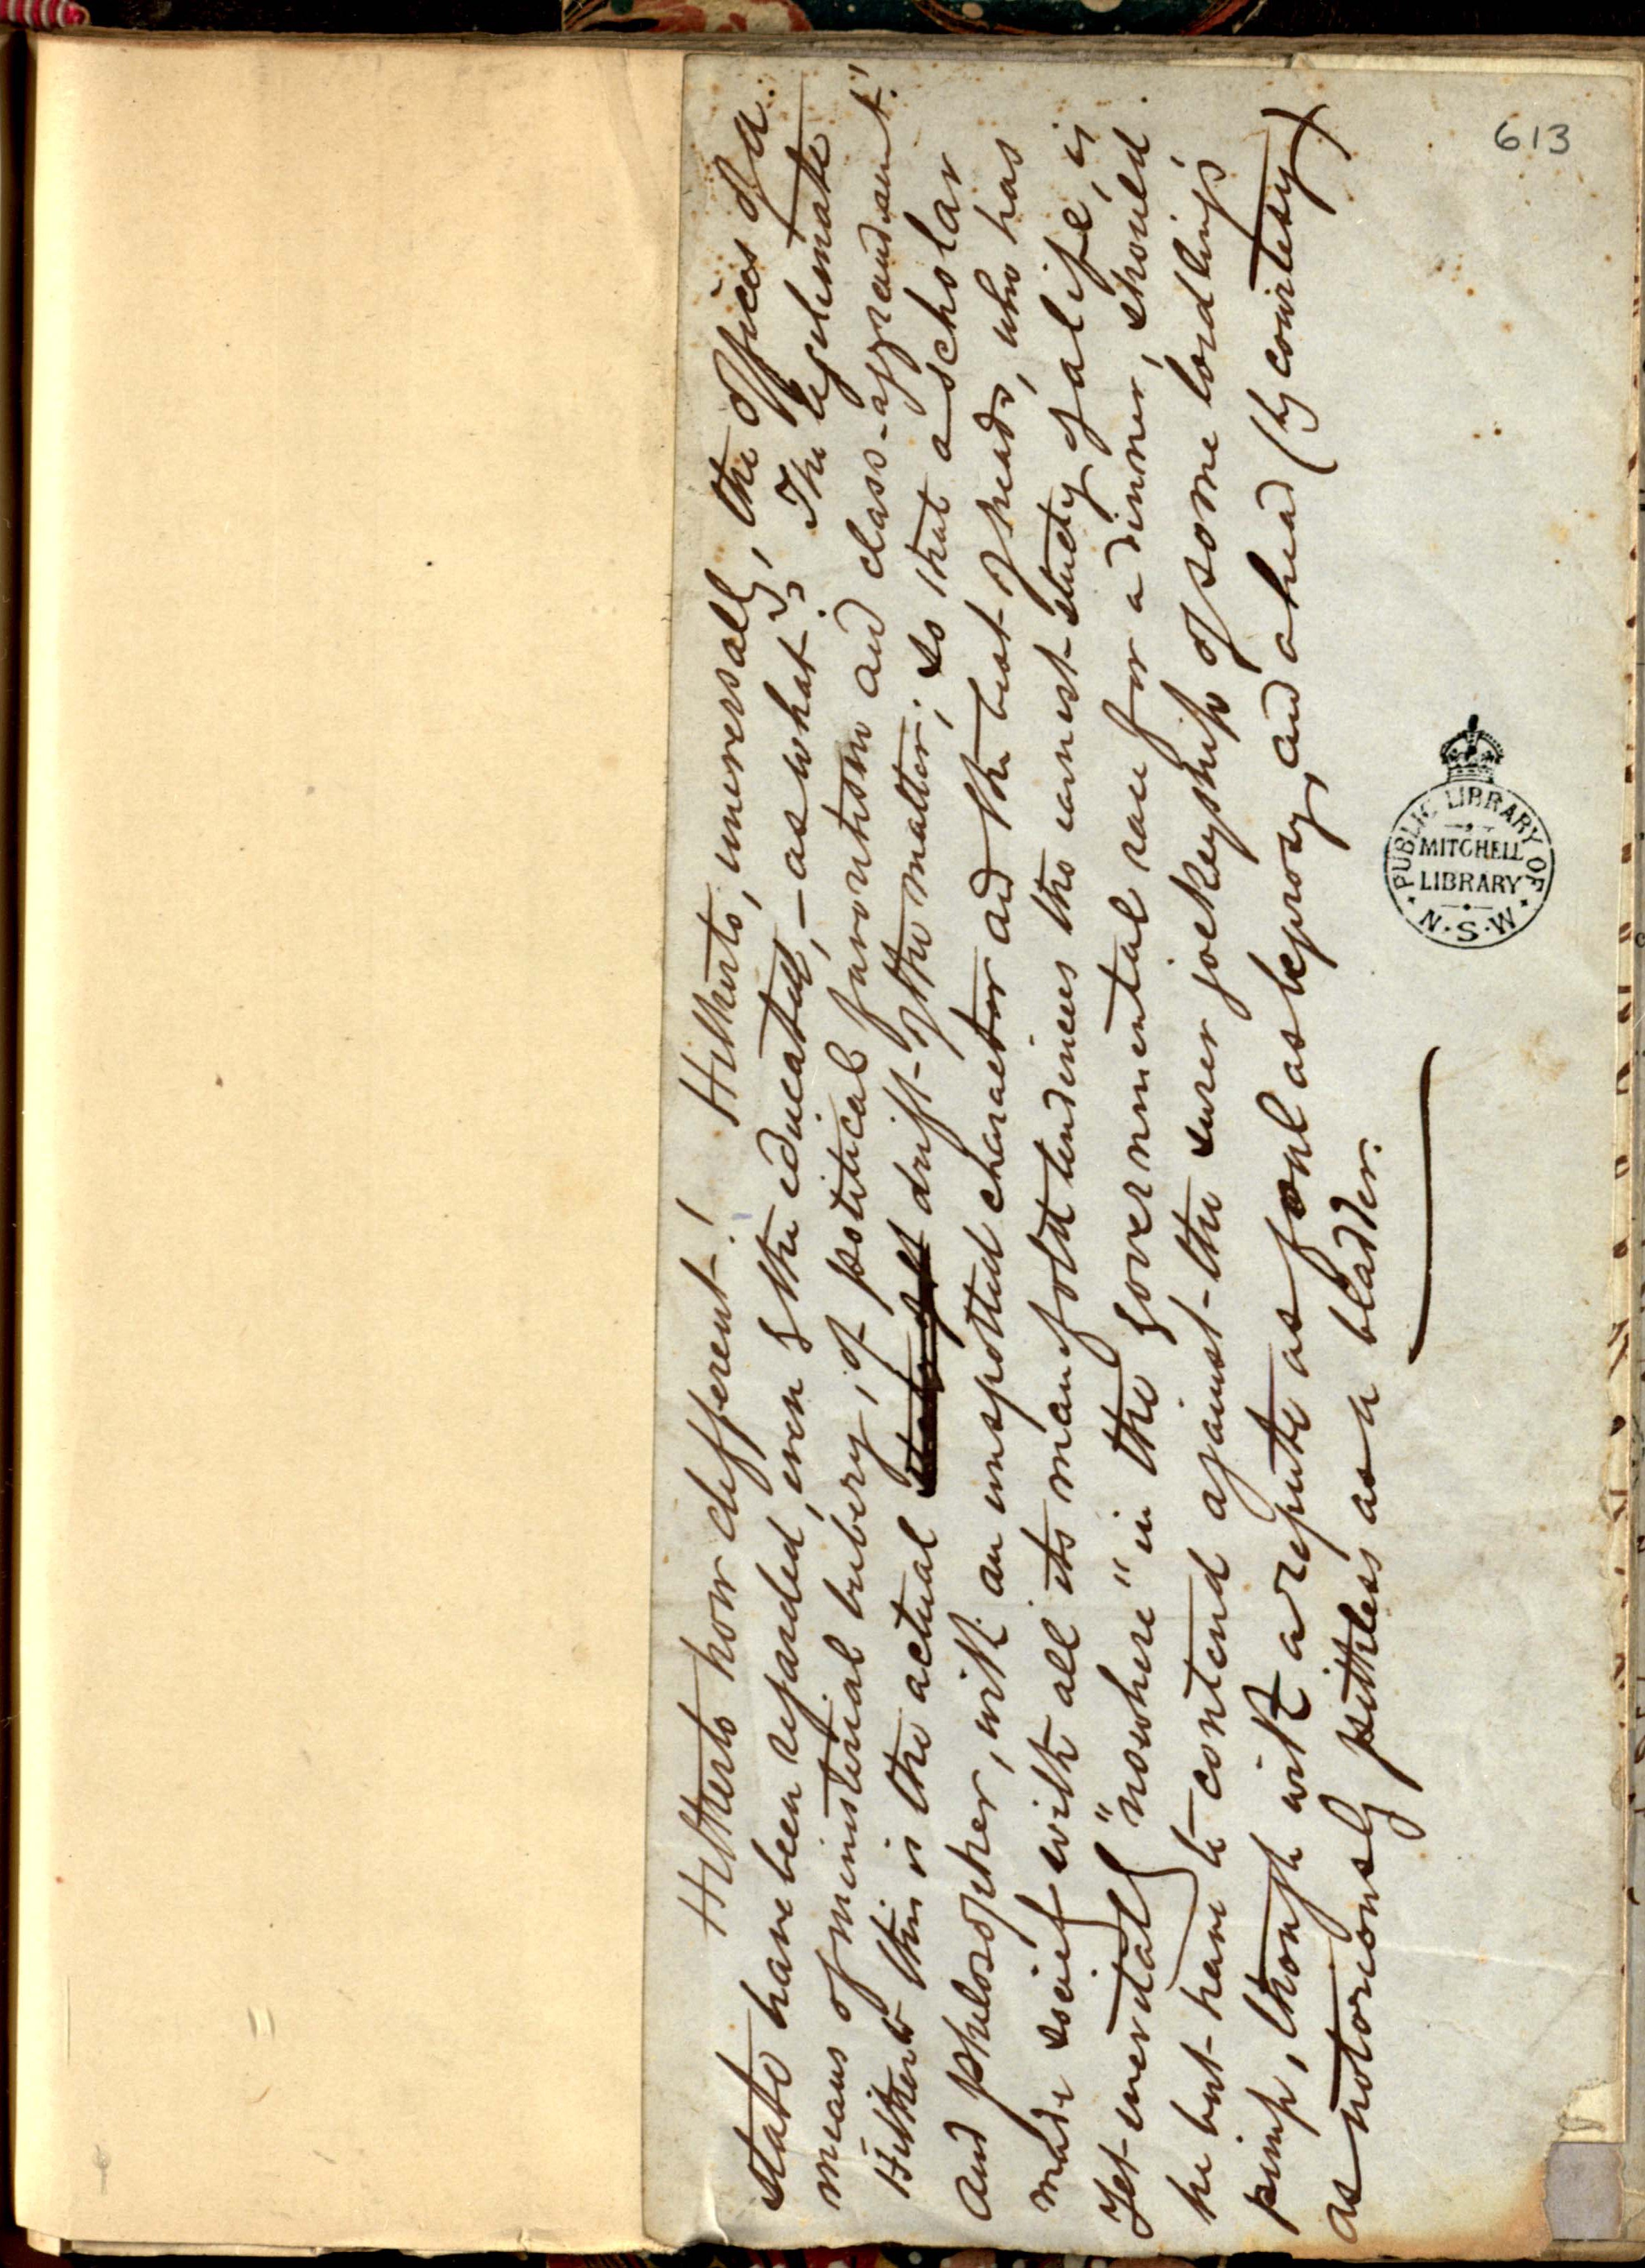 Hitherto how different! Hitherto, universally, the offices of a
state have been regarded, even by the educated, — as what? The legitimate
means of ministerial bribery, of political favoritism and class-aggrandisement!
Hitherto this is the actual drift of the matter; so that a scholar
and philosopher, with an unspotted character and the best of heads, who has
made society with all its manifold tendencies the earnest study of a life, is
yet inevitably "nowhere" in the governmental race for a dinner, should
he but have to contend against the surer jockeyship of some lordling's
pimp, though with a repute as foul as leprosy, and a head (by courtesy)
as notoriously pithless as a bladder.
613
PUBLIC LIBRARY OF
MITCHELL
LIBRARY
N.S.W.